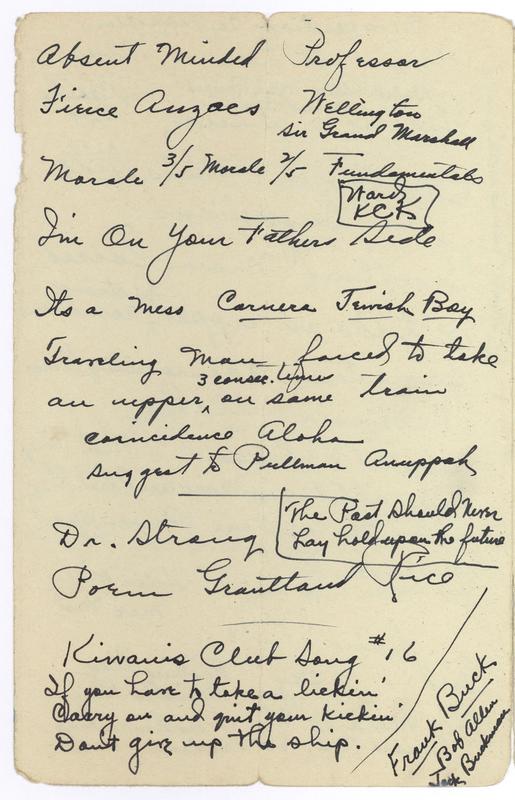 Absent Minded Professor
Fierce Anzacs Wellington
Sir Grand Marshall
Morale 3/5 Morale 2/5 Fundamentals
Ward
KCK
I'm On Your Fathers Side
Its a mess Carnera Jewish Boy
Traveling Man forced to take
3 consec. times
an upper ^ on same train
coincidence Aloha
suggest to Pullman Anuppah
The Past Should Never
Lay hold upon the future
Dr. Strong
Poem Grantland Rice
Kiwanis Club Song #16
If you have to take a lickin'
Carry on and quit your kickin'
Dont give up the ship.
Frank Buck
Bob Allen
Jack Buckman